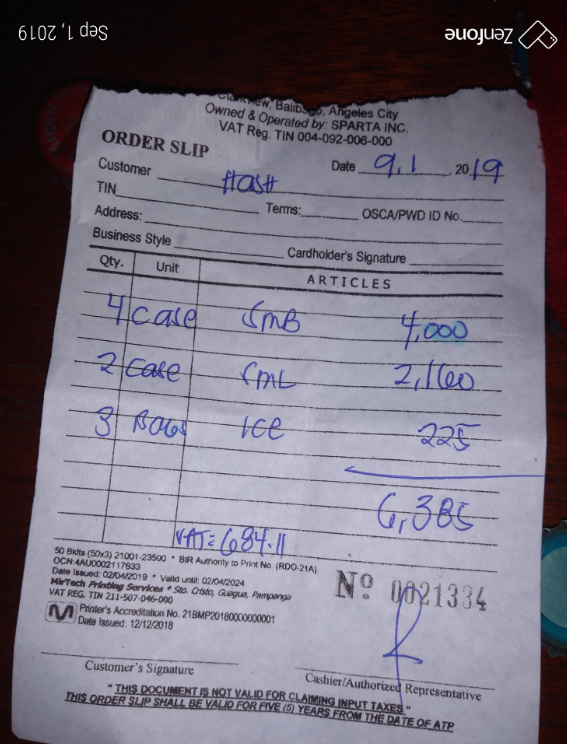 Sep 1, 2019
Zenfone
Clarkview, Balibago, Angeles City
Owned & Operated by: SPARTA INC.
VAT Reg. TIN 004-092-006-000
ORDER SLIP
Customer Hash Date 9.1, 2019
TIN Terms: OSCA/PWD ID No.
Address:
Business Style Cardholder's Signature
Qty. Unit ARTICLES
4 case SMB 4,000
2 case SML 2,160
3 Bags ICE 225
6,385
VAT = 684.11
50 Bklts (50x3) 21001-23500 * BIR Authority to Print No. (RDO-21A)
OCN:4AU0002117633
Date Issued: 02/04/2019 * Valid until: 02/04/2024
MirTech Printing Services * Sto. Cristo, Guagua, Pampanga
VAT REG. TIN 211-507-046-000
Printer's Accreditation No. 21BMP20180000000001
Date Issued: 12/12/2018
Nº 0021334
Customer's Signature
Cashier/Authorized Representative
" THIS DOCUMENT IS NOT VALID FOR CLAIMING INPUT TAXES "
THIS ORDER SLIP SHALL BE VALID FOR FIVE (5) YEARS FROM THE DATE OF ATP